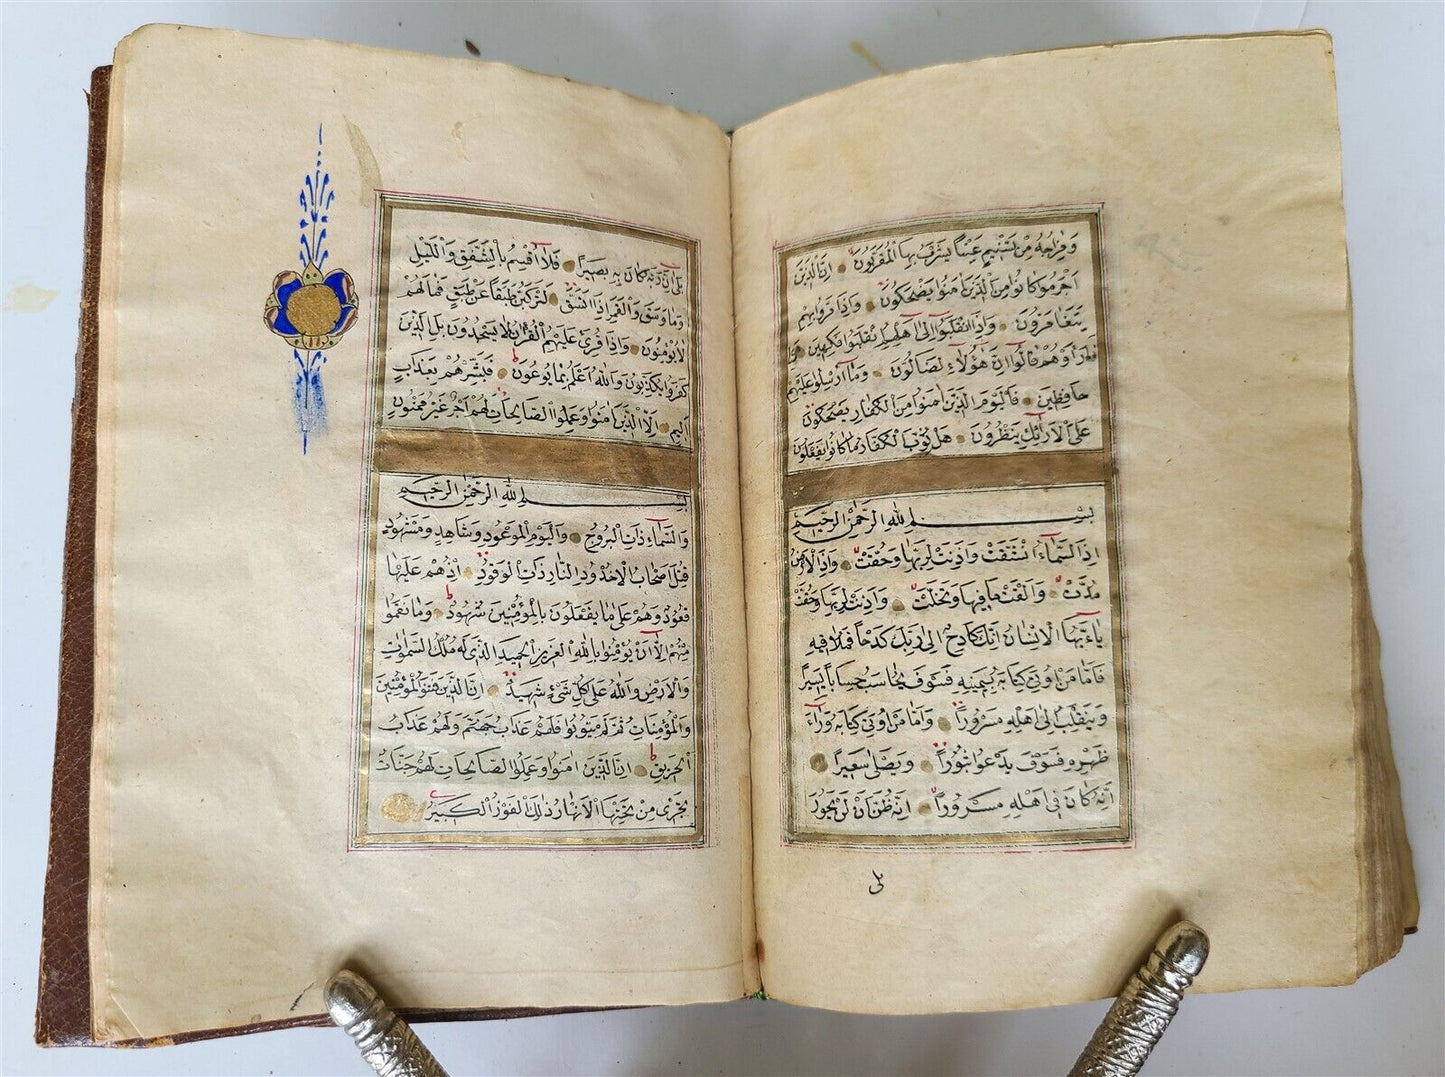 وَمِزَاجُهُ مِنْ تَسْنِيمٍ عَيْنًا يَشْرَبُ بِهَا الْمُقَرَّبُونَ اِنَّ الَّذِينَ
اَجْرَمُوا كَانُوا مِنَ الَّذِينَ اٰمَنُوا يَضْحَكُونَ وَاِذَا مَرُّوا بِهِمْ
يَتَغَامَزُونَ وَاِذَا انْقَلَبُوا اِلٰى اَهْلِهِمُ انْقَلَبُوا فَكِهِينَ وَاِذَا
رَاَوْهُمْ قَالُوا اِنَّ هٰؤُلَاءِ لَضَالُّونَ وَمَا اُرْسِلُوا عَلَيْهِمْ
حَافِظِينَ فَالْيَوْمَ الَّذِينَ اٰمَنُوا مِنَ الْكُفَّارِ يَضْحَكُونَ
عَلَى الْاَرَائِكِ يَنْظُرُونَ هَلْ ثُوِّبَ الْكُفَّارُ مَا كَانُوا يَفْعَلُونَ
بِسْمِ اللّٰهِ الرَّحْمٰنِ الرَّحِيمِ
اِذَا السَّمَاءُ انْشَقَّتْ وَاَذِنَتْ لِرَبِّهَا وَحُقَّتْ وَاِذَا الْاَرْضُ
مُدَّتْ وَاَلْقَتْ مَا فِيهَا وَتَخَلَّتْ وَاَذِنَتْ لِرَبِّهَا وَحُقَّتْ
يَاءَيُّهَا الْاِنْسَانُ اِنَّكَ كَادِحٌ اِلٰى رَبِّكَ كَدْحًا فَمُلَاقِيهِ
فَاَمَّا مَنْ اُوتِىَ كِتَابَهُ بِيَمِينِهِ فَسَوْفَ يُحَاسَبُ حِسَابًا يَسِيرًا
وَيَنْقَلِبُ اِلٰى اَهْلِهِ مَسْرُورًا وَاَمَّا مَنْ اُوتِىَ كِتَابَهُ وَرَاءَ
ظَهْرِهِ فَسَوْفَ يَدْعُوا ثُبُورًا وَيَصْلٰى سَعِيرًا
اِنَّهُ كَانَ فِى اَهْلِهِ مَسْرُورًا اِنَّهُ ظَنَّ اَنْ لَنْ يَحُورَ
بلى
بَلٰى اِنَّ رَبَّهُ كَانَ بِهِ بَصِيرًا فَلَا اُقْسِمُ بِالشَّفَقِ وَالَّيْلِ
وَمَا وَسَقَ وَالْقَمَرِ اِذَا اتَّسَقَ لَتَرْكَبُنَّ طَبَقًا عَنْ طَبَقٍ فَمَا لَهُمْ
لَا يُؤْمِنُونَ وَاِذَا قُرِئَ عَلَيْهِمُ الْقُرْاٰنُ لَا يَسْجُدُونَ بَلِ الَّذِينَ
كَفَرُوا يُكَذِّبُونَ وَاللّٰهُ اَعْلَمُ بِمَا يُوعُونَ فَبَشِّرْهُمْ بِعَذَابٍ
اَلِيمٍ اِلَّا الَّذِينَ اٰمَنُوا وَعَمِلُوا الصَّالِحَاتِ لَهُمْ اَجْرٌ غَيْرُ مَمْنُونٍ
بِسْمِ اللّٰهِ الرَّحْمٰنِ الرَّحِيمِ
وَالسَّمَاءِ ذَاتِ الْبُرُوجِ وَالْيَوْمِ الْمَوْعُودِ وَشَاهِدٍ وَمَشْهُودٍ
قُتِلَ اَصْحَابُ الْاُخْدُودِ النَّارِ ذَاتِ الْوَقُودِ اِذْ هُمْ عَلَيْهَا
قُعُودٌ وَهُمْ عَلٰى مَا يَفْعَلُونَ بِالْمُؤْمِنِينَ شُهُودٌ وَمَا نَقَمُوا
مِنْهُمْ اِلَّا اَنْ يُؤْمِنُوا بِاللّٰهِ الْعَزِيزِ الْحَمِيدِ الَّذِى لَهُ مُلْكُ السَّمٰوَاتِ
وَالْاَرْضِ وَاللّٰهُ عَلٰى كُلِّ شَىْءٍ شَهِيدٌ اِنَّ الَّذِينَ فَتَنُوا الْمُؤْمِنِينَ
وَالْمُؤْمِنَاتِ ثُمَّ لَمْ يَتُوبُوا فَلَهُمْ عَذَابُ جَهَنَّمَ وَلَهُمْ عَذَابُ
الْحَرِيقِ اِنَّ الَّذِينَ اٰمَنُوا وَعَمِلُوا الصَّالِحَاتِ لَهُمْ جَنَّاتٌ
تَجْرِى مِنْ تَحْتِهَا الْاَنْهَارُ ذٰلِكَ الْفَوْزُ الْكَبِيرُ